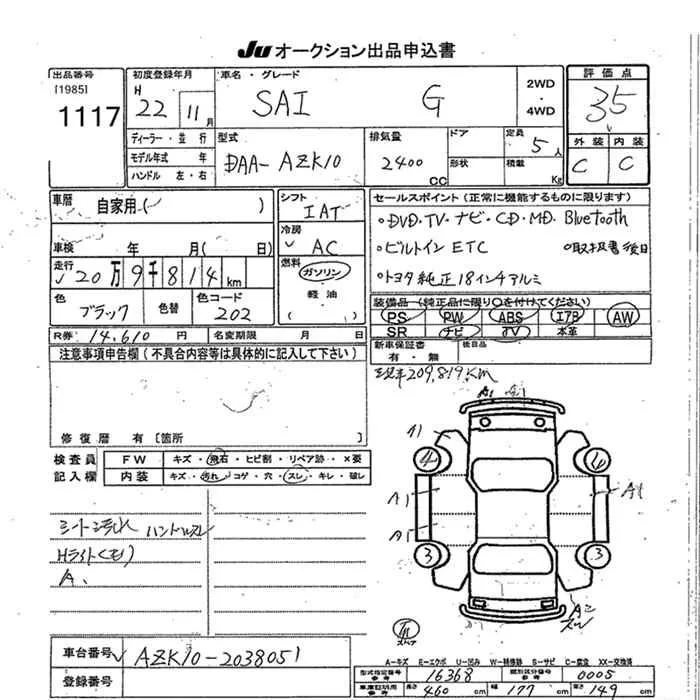 JU オークション出品申込書
出品番号
[1985]
1117
初度登録年月
H 22 年 11 月
ディーラー・並行
モデル年式 年
ハンドル 左・右
車名・グレード
SAI G
2WD
・
4WD
型式
DAA-AZK10
排気量
2400 CC
ドア
形状
定員
5人
積載
Kg
評価点
3.5
外装 内装
C C
車歴
自家用・( )
車検 年 月( 日)
走行
20万9千814km
色
ブラック
色替
色コード
202
R券 14,610 円 名変期限 月 日
シフト
IAT
冷房
AC
燃料
ガソリン
・
軽油
セールスポイント(正常に機能するものに限ります)
・DVD・TV・ナビ・CD・MD・Bluetooth
・ビルトインETC ・取扱書後日
・トヨタ純正18インチアルミ
装備品(純正品に限り○を付けてください)
PS PW ABS エアB AW
SR ナビ TV 本革
新車保証書
有・無
後日品
注意事項申告欄(不具合内容等は具体的に記入して下さい)
修復歴 有[箇所 ]
209,819Km
検査員
記入欄
FW キズ・飛石・ヒビ割・リペア跡・×要
内装 キズ・汚れ・コゲ・穴・スレ・キレ・破レ
シート汚れ ハンドルスレ
Hライト
A1 A1
A1
4 6
A1 A1
A1
3 3
A2
スレ
車台番号 AZK10-2038051
登録番号
A-キズ E-エクボ U-凹み W-補修跡 S-サビ C-腐食 XX-交換済
型式指定番号 参考 16368 類別区分番号 参考 0005
車庫証明 参考 長さ 460 cm 幅 177 cm 高さ 149 cm